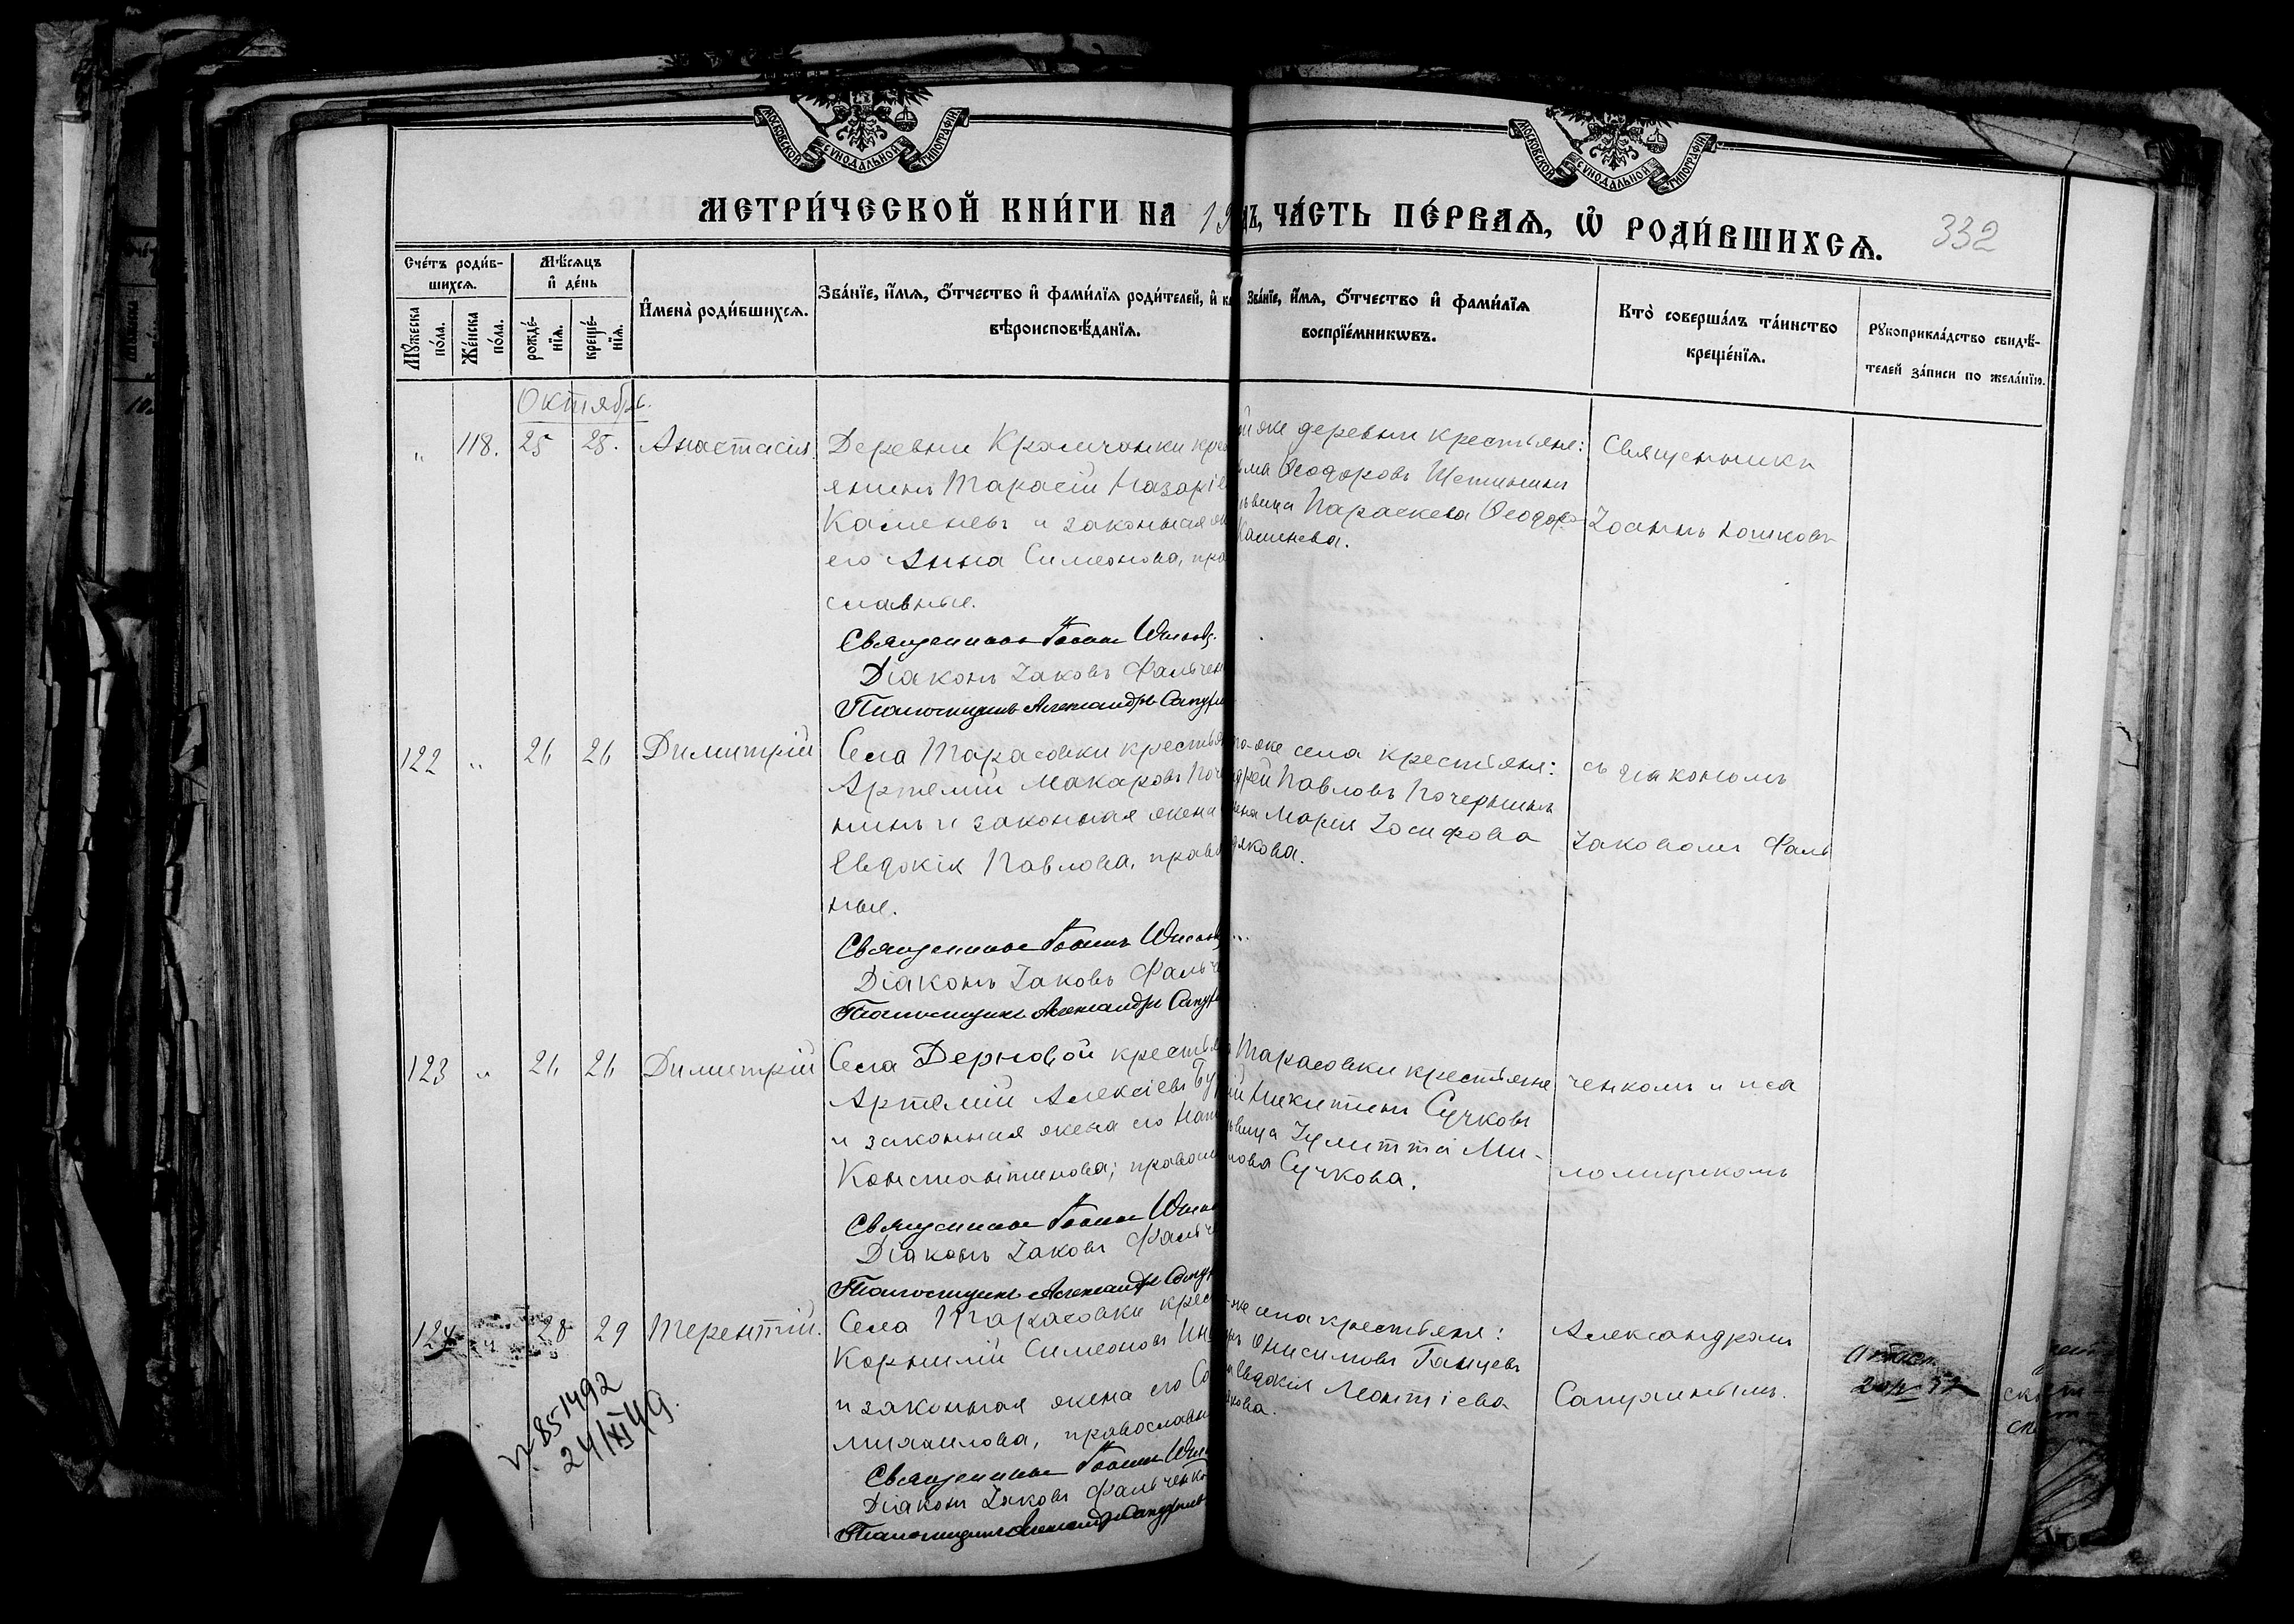 МОСКОВСКОЙ СѴНОДАЛЬНОЙ ТИПОГРАФІИ
МОСКОВСКОЙ СѴНОДАЛЬНОЙ ТИПОГРАФІИ
МЕТРИ́ЧЕСКОЙ КНИ́ГИ НА 19 ДЪ, ЧА́СТЬ ПЕ́РВАѦ, Ѡ҆ РОДИ́ВШИХСѦ.
332
Сче́тъ роди́в-
шихсѧ.
Мѣ́сѧцъ
и҆ де́нь
Мꙋ́жеска
по́ла.
Же́нска
по́ла.
рожде́-
нїѧ.
креще́-
нїѧ.
И҆мена̀ роди́вшихсѧ.
Зва́нїе, и҆́мѧ, ѻ҆́тчество и҆ фами́лїѧ роди́телей, и҆ к
вѣроисповѣ́данїѧ.
Зва́нїе, и҆́мѧ, ѻ҆́тчество и҆ фами́лїѧ
воспрїе́мникѡвъ.
Кто̀ соверша́лъ та́инство
креще́нїѧ.
Рꙋкоприкла́дство свидѣ́-
телей за́писи по жела́нїю.
Октябрь.
„ 118. 25 25. Анастасія.
Деревни крес
янинъ Тарасій Назарі
Каменевъ и законная же
его Анна Симеонова, пра
славные.
Священникъ Іоаннъ
Діаконъ Іаковъ Фальчен
Псаломщикъ Александръ Сапу
й же деревни крестьяне:
ма Ѳеодоровъ Щетининъ
ѣвица Параскева Ѳеодоро
Каменева.
Священникъ
Іоаннъ
122 „ 26 26 Димитрій
Села Тарасовки крестья
Артемій Макаровъ Поче
нинъ и законная жена
Евдокія Павлова, право
ные.
Священникъ Іоаннъ
Діаконъ Іаковъ Фальч
Псаломщикъ Александръ Сапу
го-же села крестьяне:
дрей Павловъ Почернинъ
ена Марія Іосифова
якова.
съ діакономъ
Іаковомъ Фаль
123 „ 26 26 Димитрій
Села Дерновой крестья
Артемій Алексіевъ Бу
и законная жена его Нат
Константинова; правосл
Священникъ Іоаннъ
Діаконъ Іаковъ Фальч
Псаломщикъ Александръ Сапу
Тарасовки крестьяне
ій Никитинъ Сучковъ
ѣвица Іулитта Ми-
нова Сучкова.
ченкомъ и пса
ломщикомъ
124 „ 28 29 Терентій.
Села Тарасовки крес
Корнилій Симеоновъ
и законная жена его Со
Михаилова, православны
Священникъ Іоаннъ
Діаконъ Іаковъ Фальченко
Псаломщикъ Александръ Сапу
-же села крестьяне:
Онисимовъ Ганцевъ
а Евдокія Леонтіева
якова.
Александромъ
№ 851492
24/XI 49.